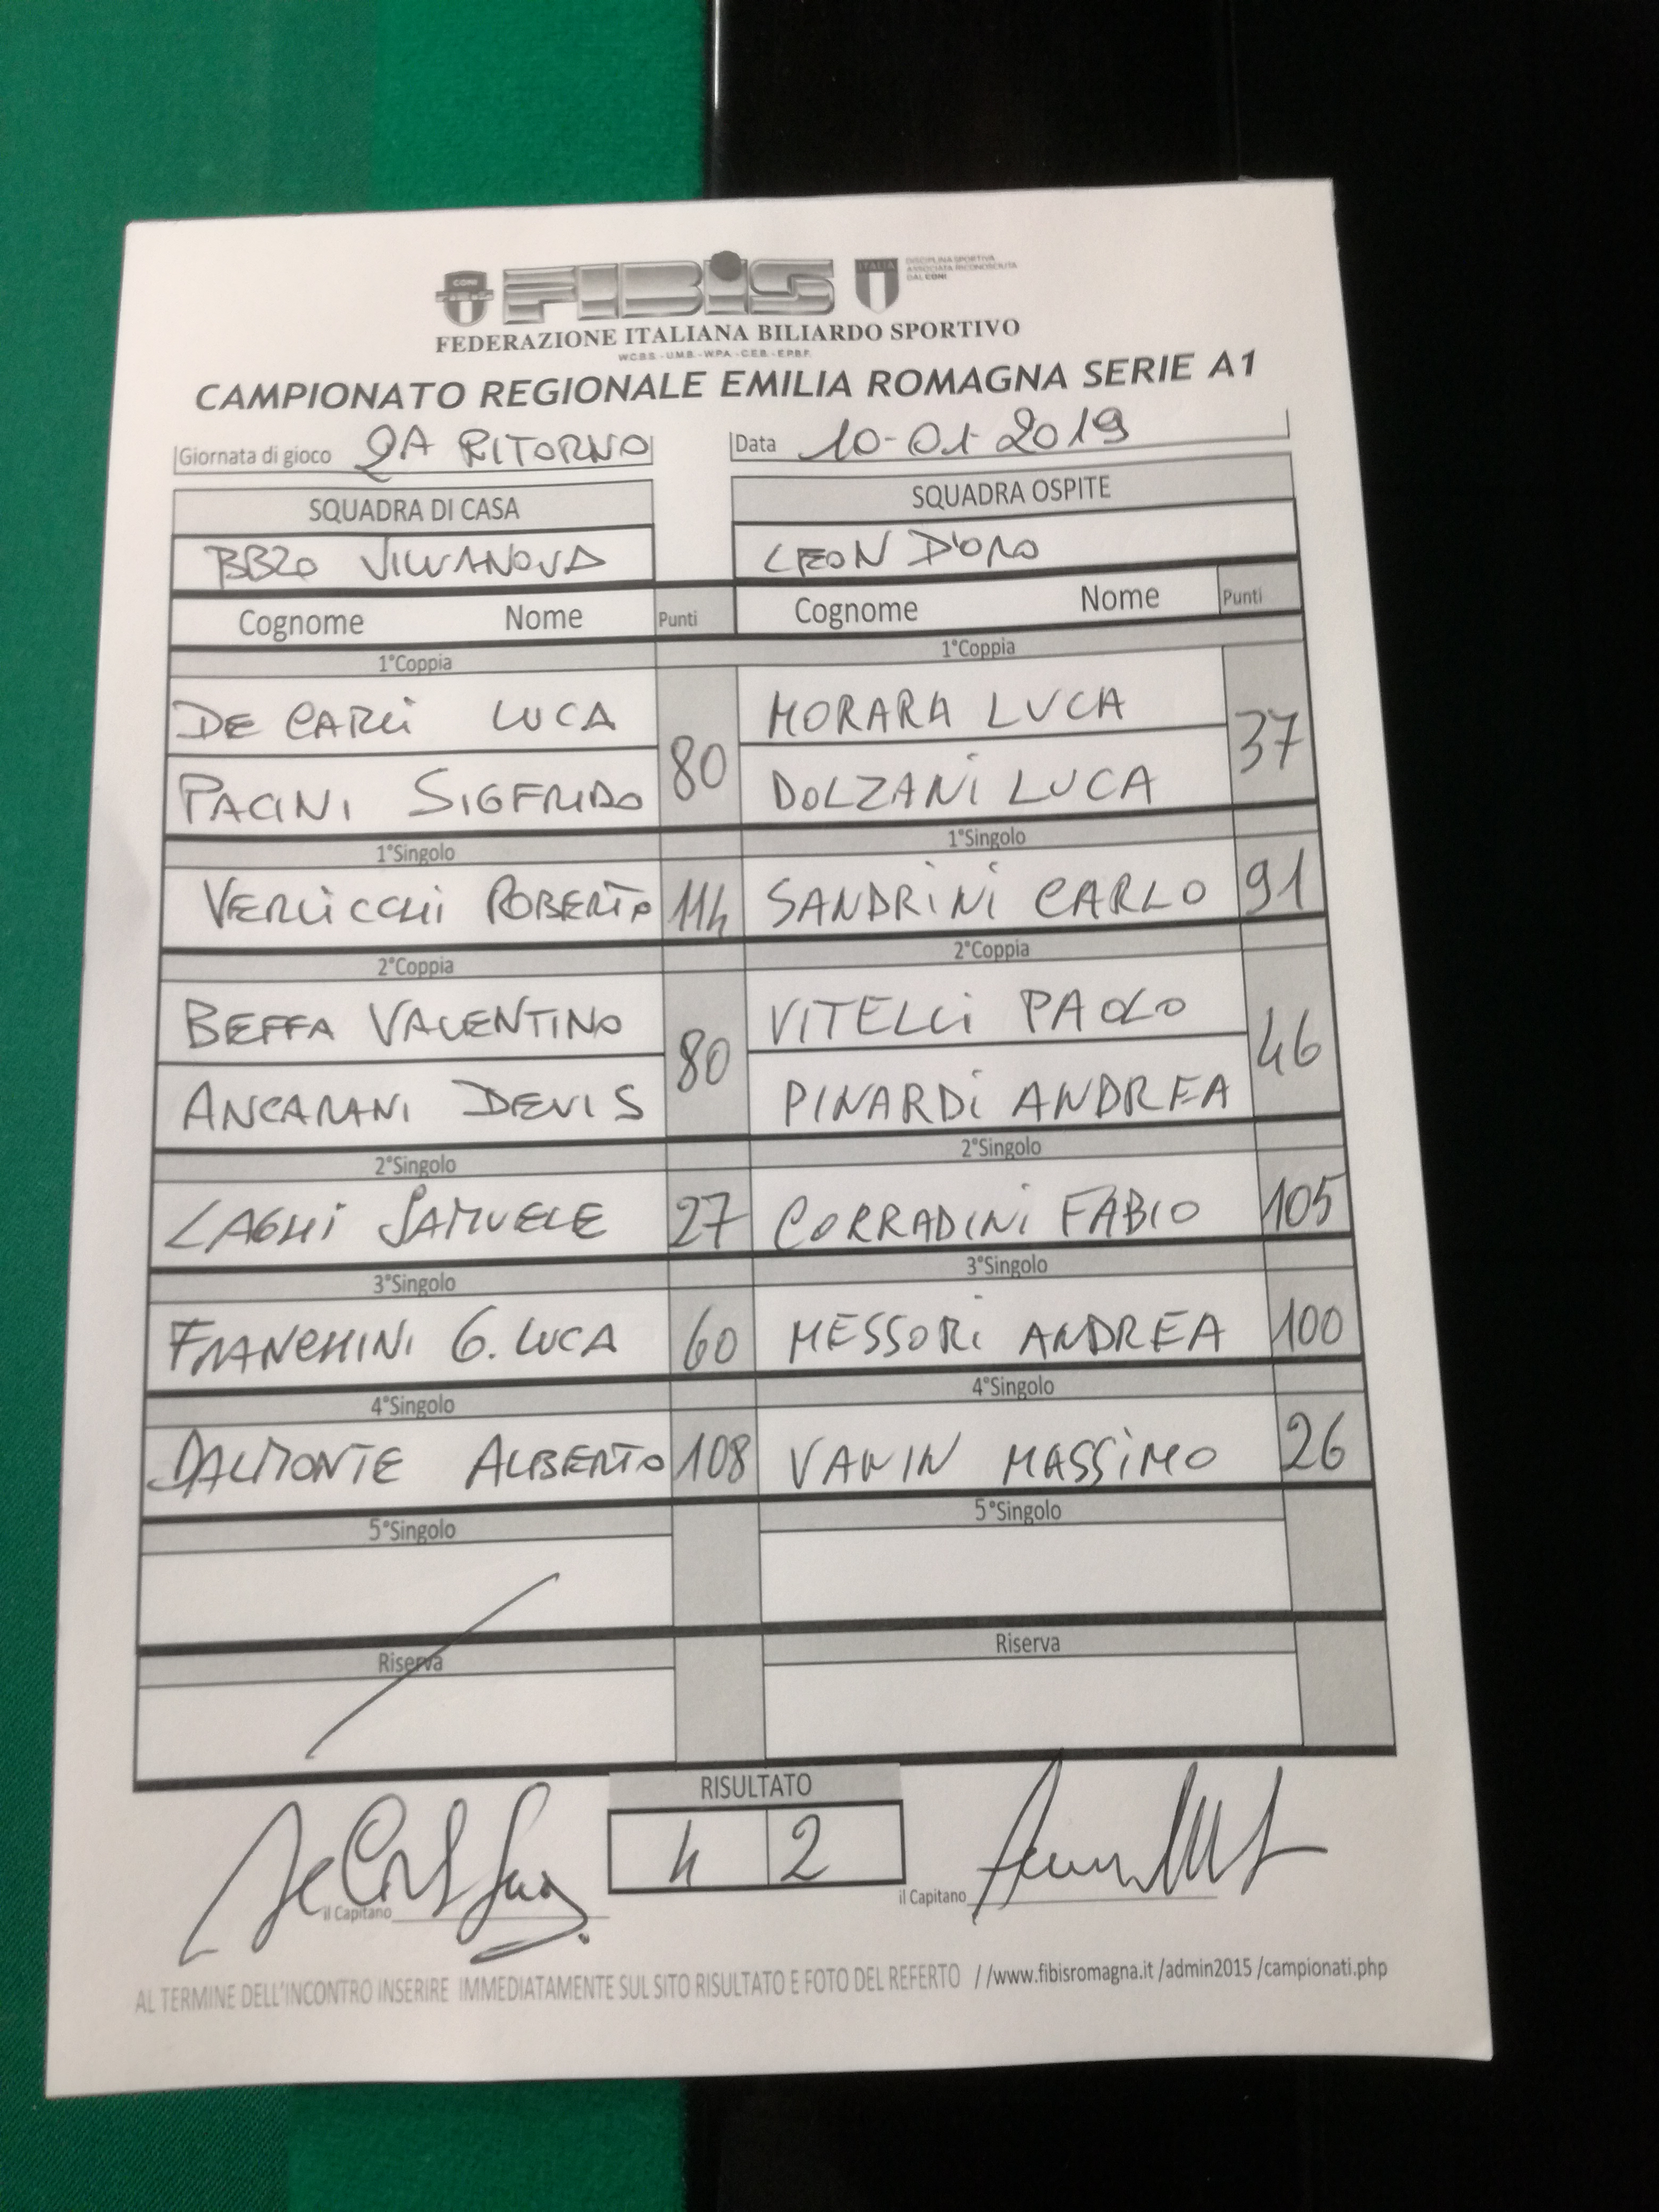 CONI
FIBIS
ITALIA
DISCIPLINA SPORTIVA
ASSOCIATA RICONOSCIUTA
DAL CONI
FEDERAZIONE ITALIANA BILIARDO SPORTIVO
W.C.B.S. - U.M.B. - W.P.A. - C.E.B. - E.P.B.F.
CAMPIONATO REGIONALE EMILIA ROMAGNA SERIE A1
Giornata di gioco 2A RITORNO Data 10-01-2019
SQUADRA DI CASA SQUADRA OSPITE
BB20 VILLANOVA LEON D'ORO
Cognome Nome Punti Cognome Nome Punti
1°Coppia 1°Coppia
DE CARLi LUCA MORARA LUCA
80 37
PACINI SIGFRIDO DOLZANi LUCA
1°Singolo 1°Singolo
VERLiCCHi ROBERTO 114 SANDRiNi CARLO 91
2°Coppia 2°Coppia
BEFFA VALENTINO VITELLi PAOLO
80 46
ANCARANI DEVIS PINARDi ANDREA
2°Singolo 2°Singolo
LAGHi SAMUELE 27 CORRADiNi FABIO 105
3°Singolo 3°Singolo
FRANCHINI G. LUCA 60 MESSORi ANDREA 100
4°Singolo 4°Singolo
DALMONTE ALBERTO 108 VANIN MASSiMO 26
5°Singolo 5°Singolo
Riserva Riserva
RISULTATO
4 2
il Capitano il Capitano
AL TERMINE DELL'INCONTRO INSERIRE IMMEDIATAMENTE SUL SITO RISULTATO E FOTO DEL REFERTO //www.fibisromagna.it /admin2015 /campionati.php